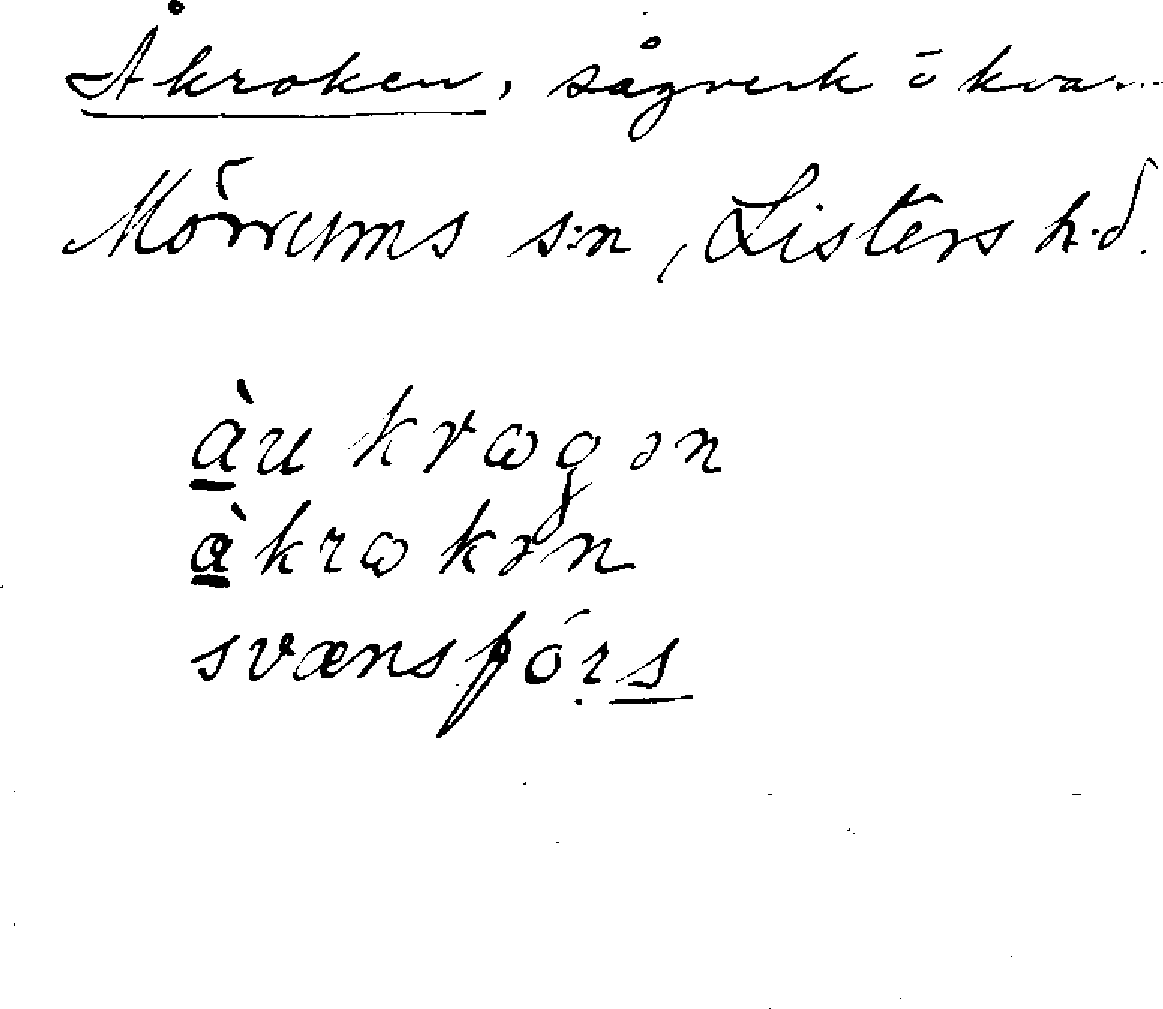 Åkroken, sågverk ō
Mörrums s:n, Listers h.d.
àu krꞷgən
àkrꞷkən
svænsfórs